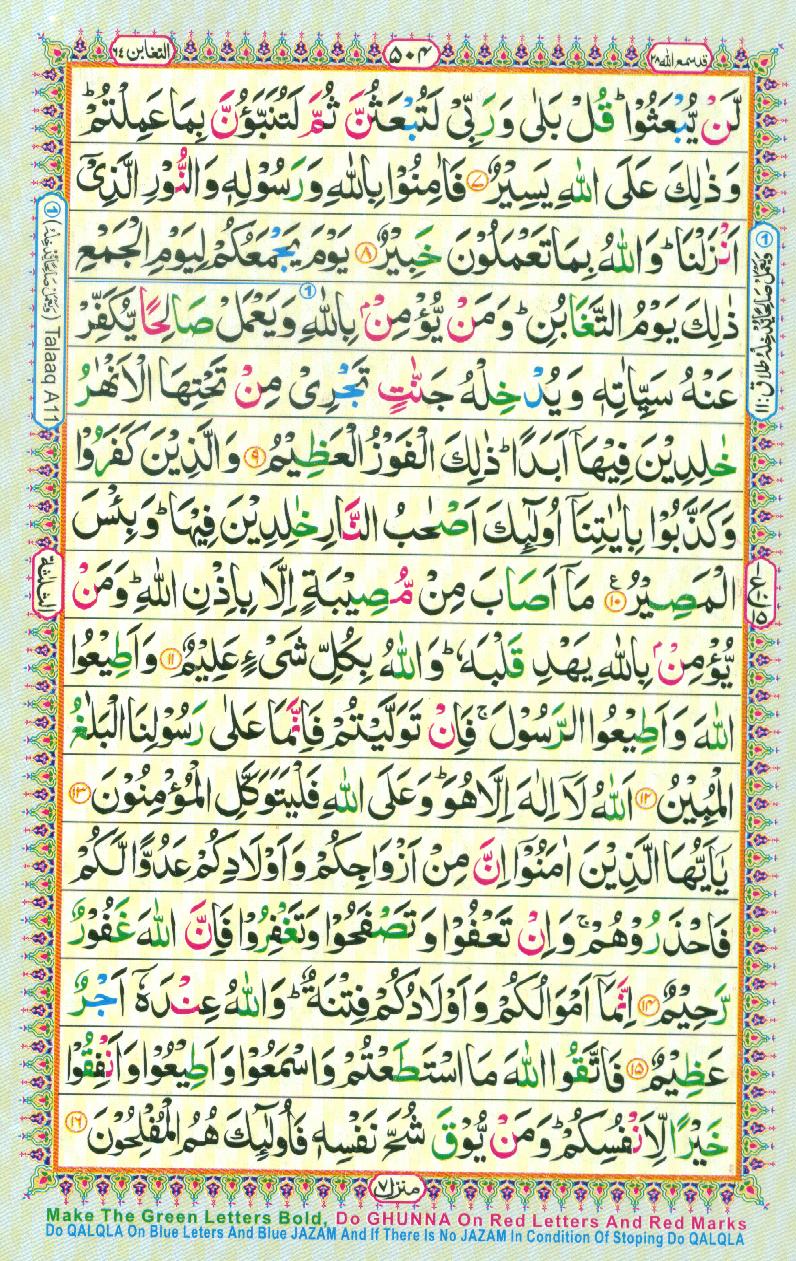 التغابن ٦٤
۵۰۴
قد سمع الله ۲۸
لَّنْ یُّبْعَثُوْا ؕ قُلْ بَلٰی وَرَبِّیْ لَتُبْعَثُنَّ ثُمَّ لَتُنَبَّؤُنَّ بِمَا عَمِلْتُمْ ؕ
وَذٰلِكَ عَلَی اللّٰهِ یَسِیْرٌ ﴿۷﴾ فَاٰمِنُوْا بِاللّٰهِ وَرَسُوْلِهٖ وَالنُّوْرِ الَّذِیْۤ
اَنْزَلْنَا ؕ وَاللّٰهُ بِمَا تَعْمَلُوْنَ خَبِیْرٌ ﴿۸﴾ یَوْمَ یَجْمَعُكُمْ لِیَوْمِ الْجَمْعِ
ذٰلِكَ یَوْمُ التَّغَابُنِ ؕ وَمَنْ یُّؤْمِنْۢ بِاللّٰهِ وَیَعْمَلْ صَالِحًا یُّكَفِّرْ
عَنْهُ سَیِّاٰتِهٖ وَیُدْخِلْهُ جَنّٰتٍ تَجْرِیْ مِنْ تَحْتِهَا الْاَنْهٰرُ
خٰلِدِیْنَ فِیْهَاۤ اَبَدًا ؕ ذٰلِكَ الْفَوْزُ الْعَظِیْمُ ﴿۹﴾ وَالَّذِیْنَ كَفَرُوْا
وَكَذَّبُوْا بِاٰیٰتِنَاۤ اُولٰٓئِكَ اَصْحٰبُ النَّارِ خٰلِدِیْنَ فِیْهَا ؕ وَبِئْسَ
الْمَصِیْرُ ﴿۱۰﴾ۧ مَاۤ اَصَابَ مِنْ مُّصِیْبَةٍ اِلَّا بِاِذْنِ اللّٰهِ ؕ وَمَنْ
یُّؤْمِنْۢ بِاللّٰهِ یَهْدِ قَلْبَهٗ ؕ وَاللّٰهُ بِكُلِّ شَیْءٍ عَلِیْمٌ ﴿۱۱﴾ وَاَطِیْعُوا
اللّٰهَ وَاَطِیْعُوا الرَّسُوْلَ ۚ فَاِنْ تَوَلَّیْتُمْ فَاِنَّمَا عَلٰی رَسُوْلِنَا الْبَلٰغُ
الْمُبِیْنُ ﴿۱۲﴾ اَللّٰهُ لَاۤ اِلٰهَ اِلَّا هُوَ ؕ وَعَلَی اللّٰهِ فَلْیَتَوَكَّلِ الْمُؤْمِنُوْنَ ﴿۱۳﴾
یٰۤاَیُّهَا الَّذِیْنَ اٰمَنُوْۤا اِنَّ مِنْ اَزْوَاجِكُمْ وَاَوْلَادِكُمْ عَدُوًّا لَّكُمْ
فَاحْذَرُوْهُمْ ۚ وَاِنْ تَعْفُوْا وَتَصْفَحُوْا وَتَغْفِرُوْا فَاِنَّ اللّٰهَ غَفُوْرٌ
رَّحِیْمٌ ﴿۱۴﴾ اِنَّمَاۤ اَمْوَالُكُمْ وَاَوْلَادُكُمْ فِتْنَةٌ ؕ وَاللّٰهُ عِنْدَهٗۤ اَجْرٌ
عَظِیْمٌ ﴿۱۵﴾ فَاتَّقُوا اللّٰهَ مَا اسْتَطَعْتُمْ وَاسْمَعُوْا وَاَطِیْعُوْا وَاَنْفِقُوْا
خَیْرًا لِّاَنْفُسِكُمْ ؕ وَمَنْ یُّوْقَ شُحَّ نَفْسِهٖ فَاُولٰٓئِكَ هُمُ الْمُفْلِحُوْنَ ﴿۱۶﴾
منزل ۷
Talaaq A11
Make The Green Letters Bold, Do GHUNNA On Red Letters And Red Marks
Do QALQLA On Blue Leters And Blue JAZAM And If There Is No JAZAM In Condition Of Stoping Do QALQLA